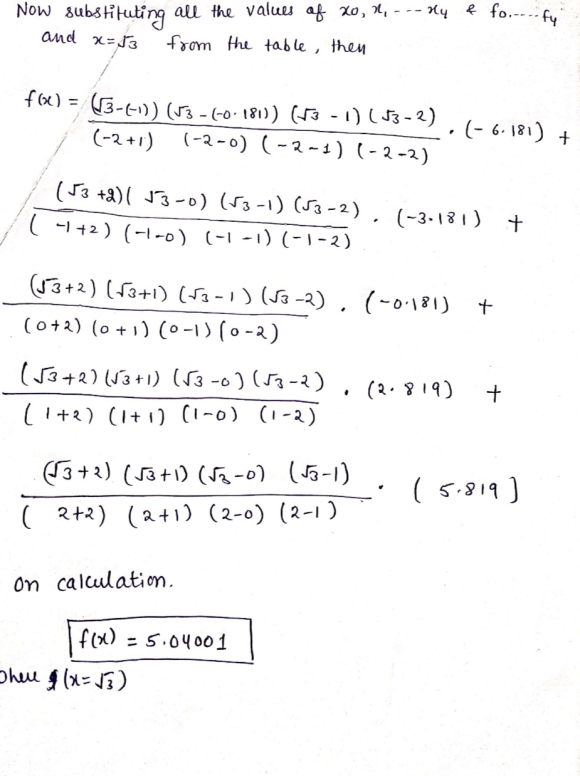 Now substituting all the values of x0, x1 --- x4 & f0.----f4
and x=√3 from the table, then
f(x) = (√3-(-1)) (√3-(-0.181)) (√3-1) (√3-2)
(-2+1) (-2-0) (-2-1) (-2-2) . (-6.181) +
(√3+2)(√3-0) (√3-1) (√3-2)
(-1+2) (-1-0) (-1-1) (-1-2) . (-3.181) +
(√3+2) (√3+1) (√3-1) (√3-2)
(0+2) (0+1) (0-1) (0-2) . (-0.181) +
(√3+2) (√3+1) (√3-0) (√3-2)
(1+2) (1+1) (1-0) (1-2) . (2.819) +
(√3+2) (√3+1) (√3-0) (√3-1)
(2+2) (2+1) (2-0) (2-1) . (5.819]
on calculation.
f(x) = 5.04001
(x=√3)